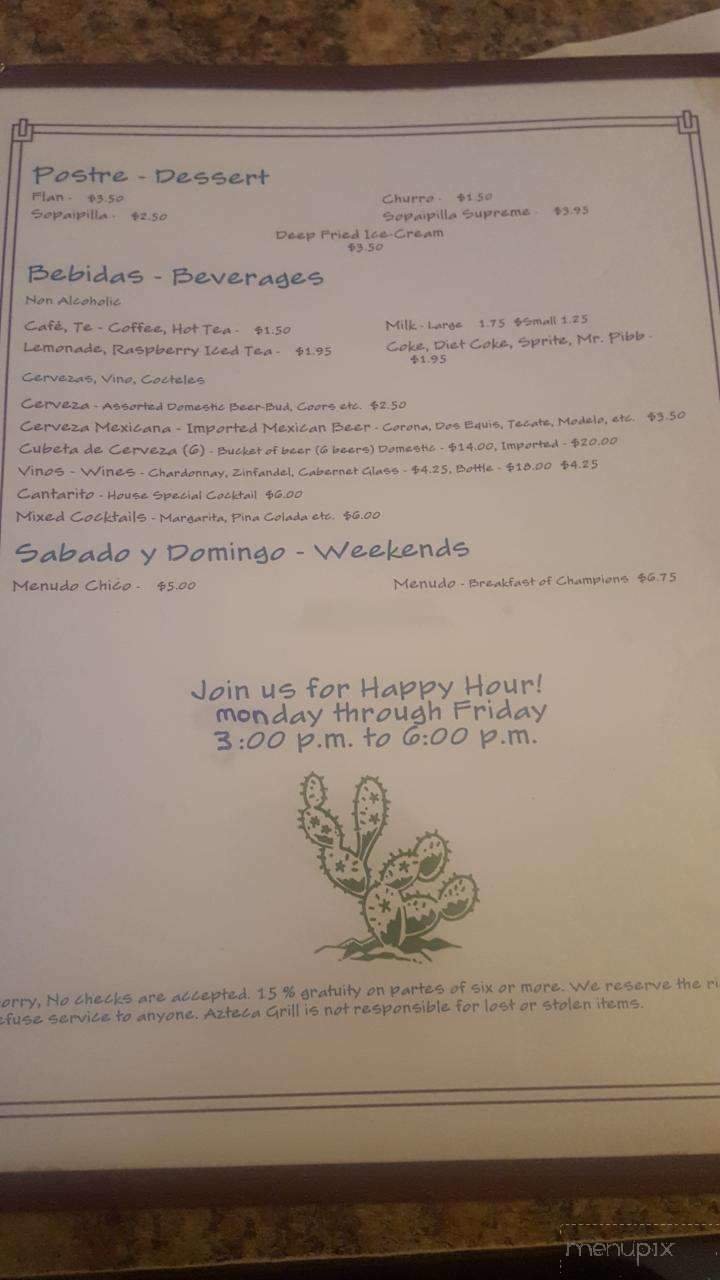 Postre - Dessert
Flan - $3.50 Churro - $1.50
Sopaipilla - $2.50 Sopaipilla Supreme - $3.95
Deep Fried Ice-Cream
$3.50
Bebidas - Beverages
Non Alcoholic
Cafè, Te - Coffee, Hot Tea - $1.50 Milk - Large 1.75 $Small 1.25
Lemonade, Raspberry Iced Tea - $1.95 Coke, Diet Coke, Sprite, Mr. Pibb -
$1.95
Cervezas, Vino, Cocteles
Cerveza - Assorted Domestic Beer-Bud, Coors etc. $2.50
Cerveza Mexicana - Imported Mexican Beer - Corona, Dos Equis, Tecate, Modelo, etc. $3.50
Cubeta de Cerveza (6) - Bucket of beer (6 beers) Domestic - $14.00, Imported - $20.00
Vinos - Wines - Chardonnay, Zinfandel, Cabernet Glass - $4.25, Bottle - $18.00 $4.25
Cantarito - House Special Cocktail $6.00
Mixed Cocktails - Margarita, Pina Colada etc. $6.00
Sabado y Domingo - Weekends
Menudo Chico - $5.00 Menudo - Breakfast of Champions $6.75
Join us for Happy Hour!
monday through Friday
3:00 p.m. to 6:00 p.m.
orry, No checks are accepted. 15 % gratuity on partes of six or more. We reserve the ri
efuse service to anyone. Azteca Grill is not responsible for lost or stolen items.
menupix